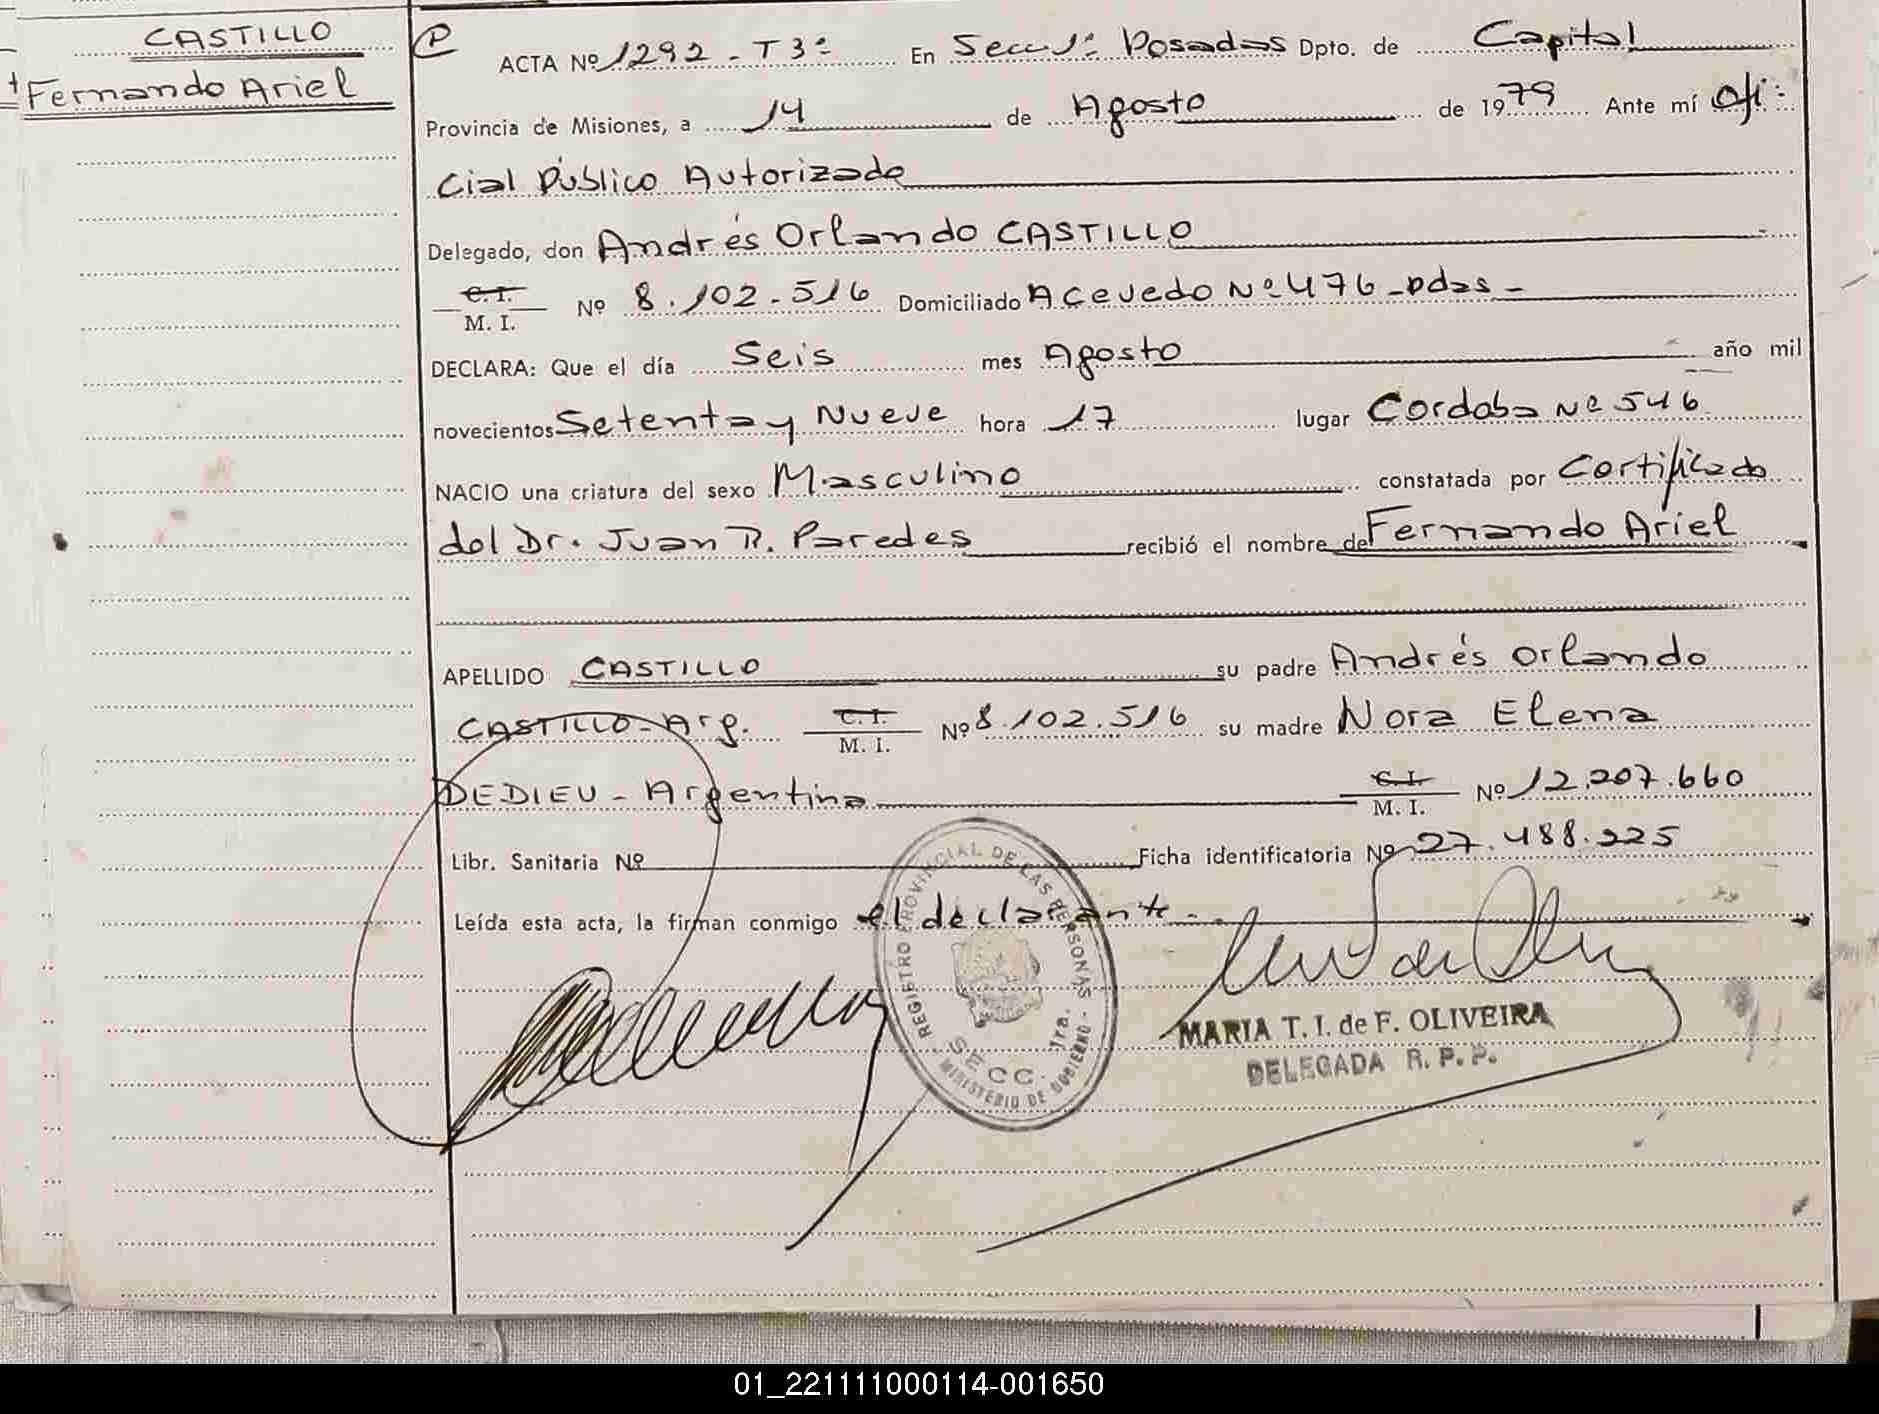 CASTILLO
Fernando Ariel
P
ACTA Nº 1292 - T3º En Secc 1ª Posadas Dpto. de Capital
Provincia de Misiones, a 14 de Agosto de 1979 Ante mí Ofi-
cial Público Autorizado
Delegado, don Andrés Orlando CASTILLO
C. I.
M. I. Nº 8.102.516 Domiciliado Acevedo Nº 476 - Pdas -
DECLARA: Que el día Seis mes Agosto año mil
novecientos Setenta y Nueve hora 17 lugar Cordoba Nº 546
NACIO una criatura del sexo Masculino constatada por Certificado
del Dr. Juan R. Paredes recibió el nombre de Fernando Ariel
APELLIDO CASTILLO su padre Andrés Orlando
CASTILLO - Arg. C. I. M. I. Nº 8.102.516 su madre Nora Elena
DEDIEU - Argentina C. I. M. I. Nº 12.207.660
Libr. Sanitaria Nº Ficha identificatoria Nº 27.488.225
Leída esta acta, la firman conmigo el declarante -
REGISTRO PROVINCIAL DE LAS PERSONAS
SECC. 1ra.
MINISTERIO DE GOBIERNO
MARIA T. I. de F. OLIVEIRA
DELEGADA R. P. P.
01_221111000114-001650